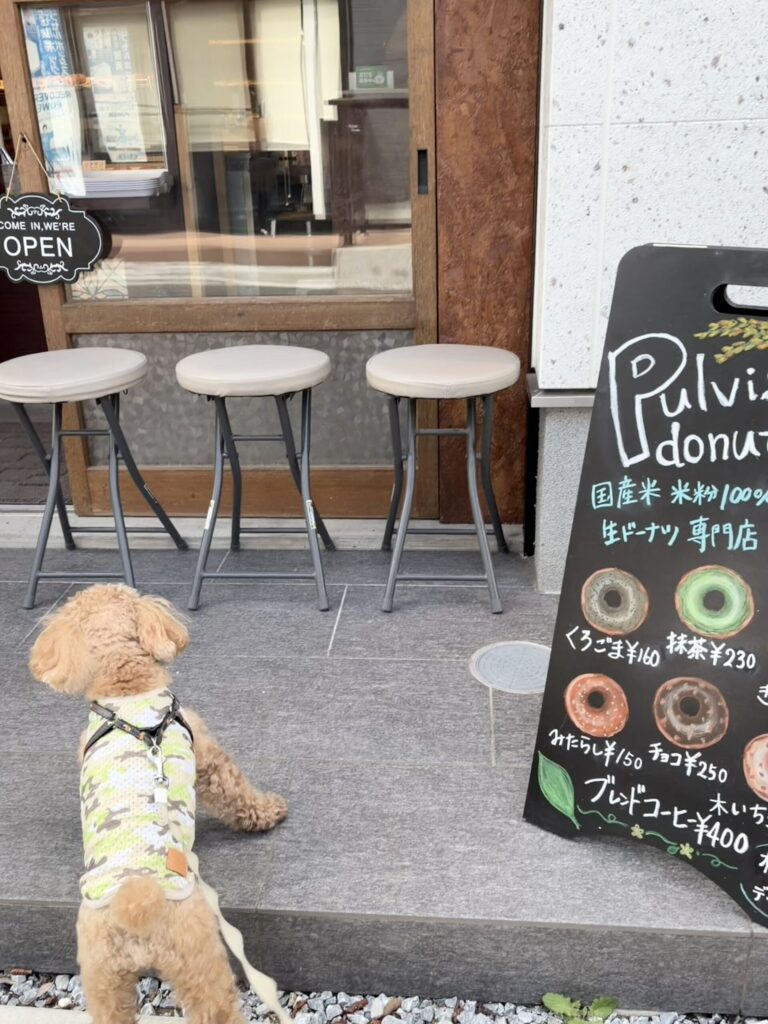 COME IN, WE'RE
OPEN
Pulvis
donut
国産米 米粉100%
生ドーナツ 専門店
くろごま¥160
抹茶¥230
みたらし¥150
チョコ¥250
木いち
ブレンドコーヒー¥400